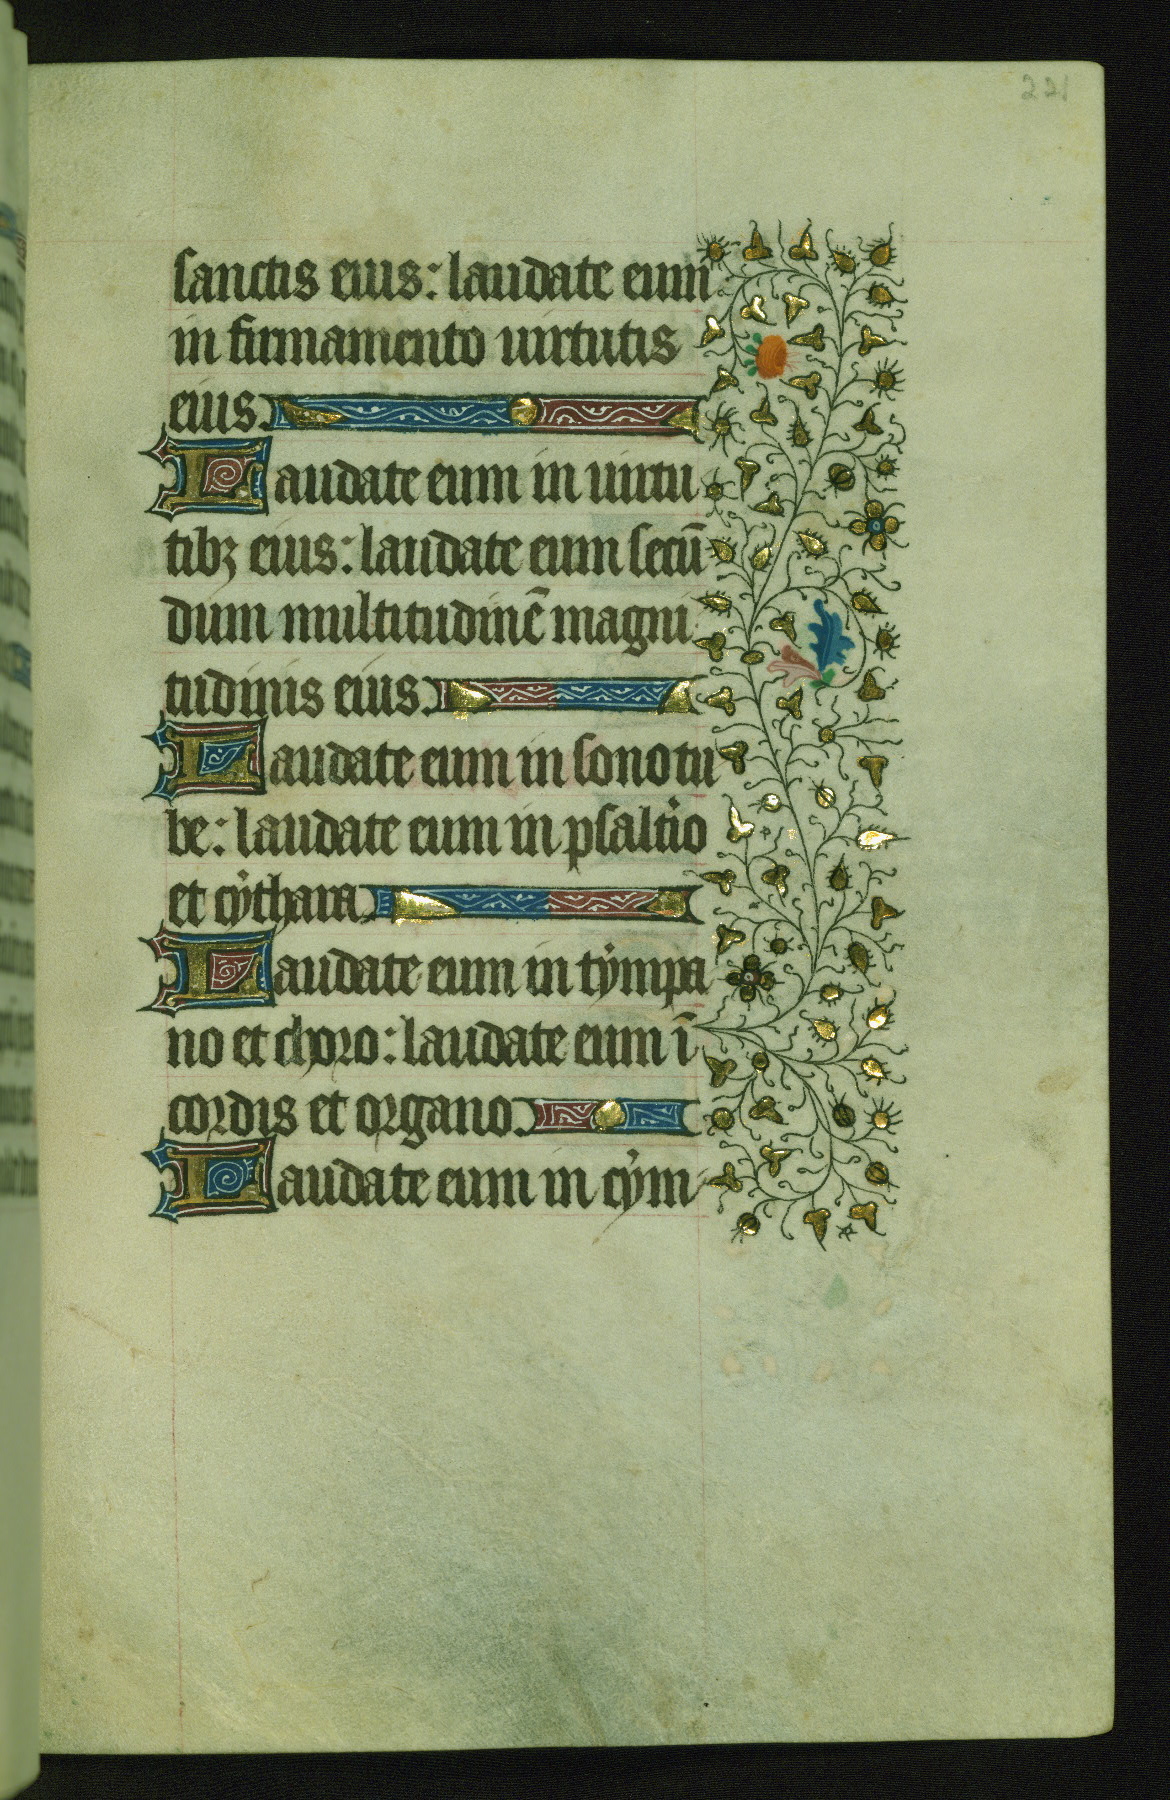 221
sanctis eius: laudate eum
in firmamento uirtutis
eius.
Laudate eum in uirtu
tibꝫ eius: laudate eum secū
dum multitudinē magni
tudinis eius.
Laudate eum in sono tu
be: laudate eum in psalt'io
et cẏthara.
Laudate eum in tẏmpa
no et choro: laudate eum ī
cordis et organo.
Laudate eum in cẏm